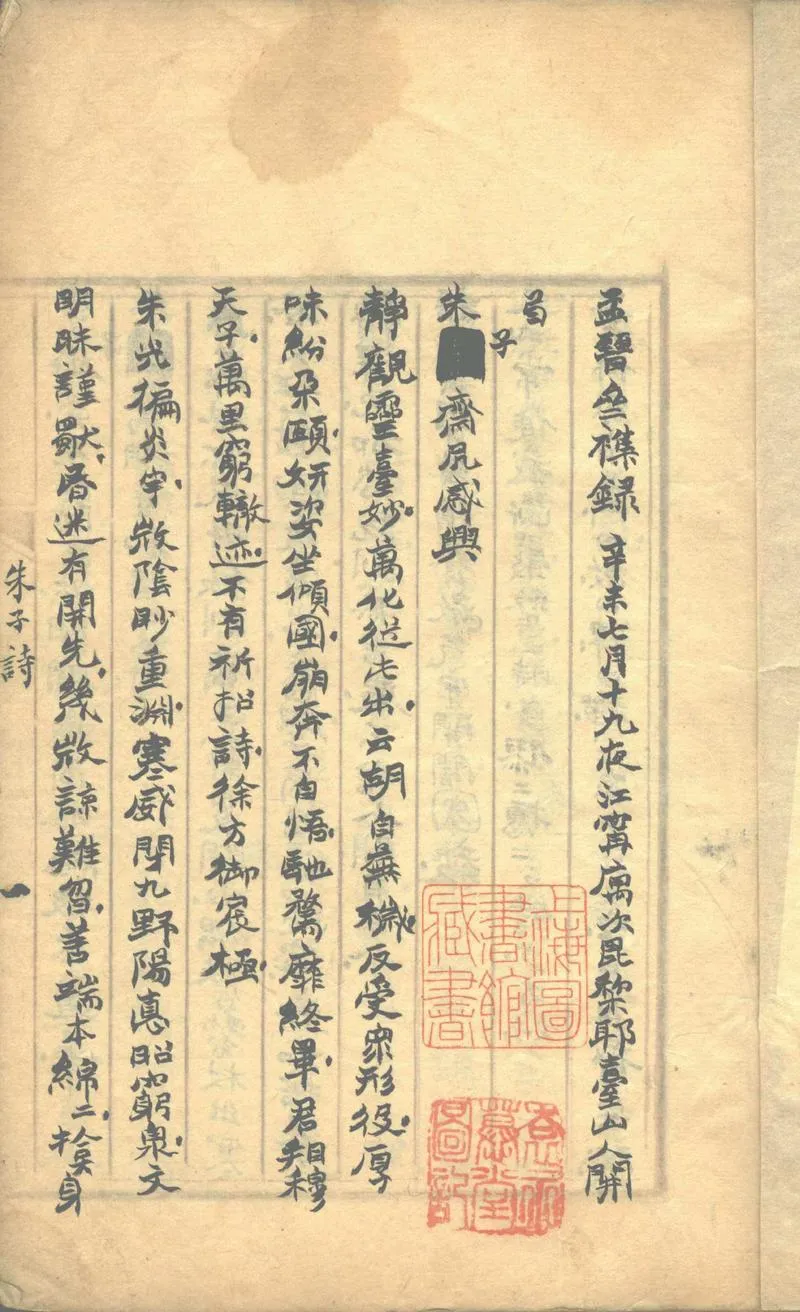 孟晉亝襍録 辛未七月十九夜江甯寓次毘黎耶臺山人開
朱子齋尻感興
靜觀靈臺妙萬化從此出云胡自蕪穢反受衆形役厚
味紛朵頤妍姿坐傾國崩奔不自悟馳騖靡終畢君看穆
天子萬里窮轍迹不有祈招詩徐方御宸極
朱光徧炎宇微陰眇重淵寒威閉九野陽悳昭窮泉文
明昧謹獨昏迷有開先幾微諒難曶善端本綿二揜身
朱子詩
一
上海圖書館藏書